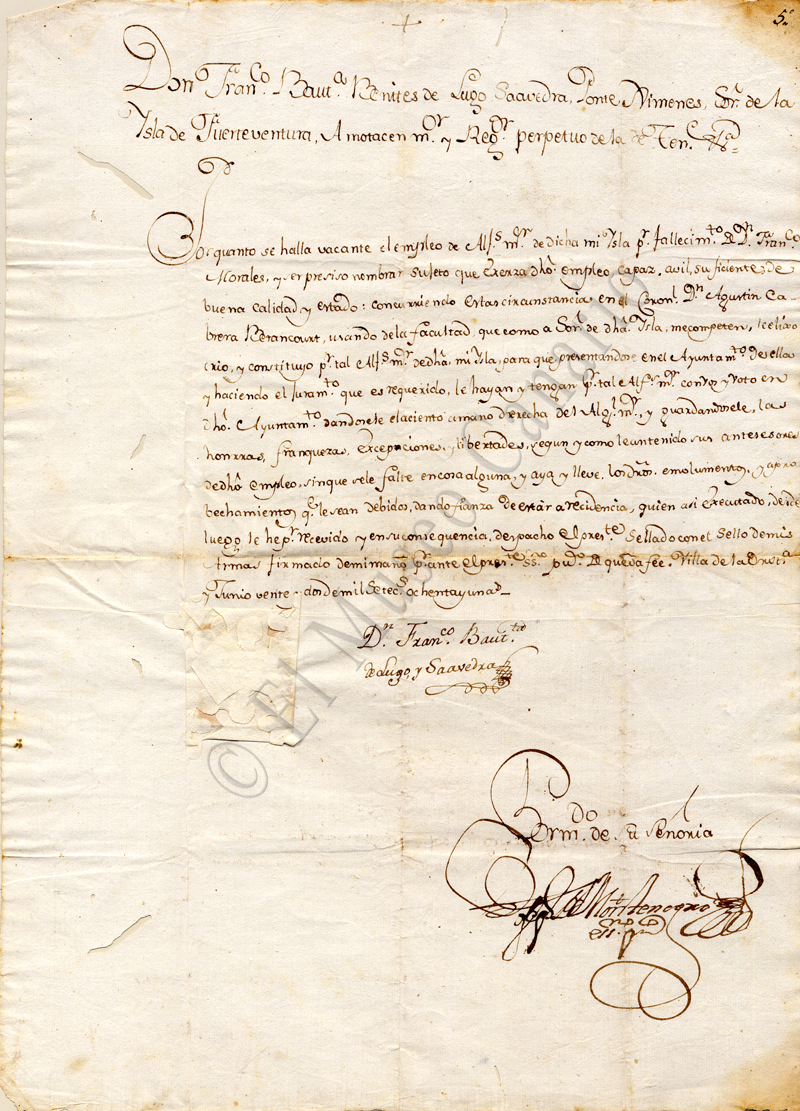 5.º
+
Don Fran.co Baut.a Benites de Lugo Saavedra, Ponte Ximenes, S.or de la
Isla de Fuerteventura, Amotacen m.or y Reg.or perpetuo de la de Ten.e &.a
Por quanto se halla vacante el empleo de Alf.s m.or de dicha mi Isla p.r fallecim.to de D.n Fran.co
Morales, y ser presiso nombrar sujeto que exerza dho. empleo, capaz, avil, suficiente, de
buena calidad y estado: concurriendo estas circunstancia en el Coron.l D.n Agustin Ca-
brera Betancourt, usando de la facultad, que como a S.or de dha. Isla, me competen, le elixo
crio, y constituyo p.r tal Alf.s m.or de dha. mi Isla, para que presentandose en el Ayuntam.to de ella
y haciendo el Juram.to que es requerido, le hayan y tengan p.r tal Alf.s m.or con voz y voto en
dho. Ayuntam.to dandosele el aciento a mano derecha del Alg.l m.or, y guardandosele, las
honrras, franquezas, excepciones, y libertades, segun y como lo an tenido sus antesesores
de dho. empleo, sin que se le falte en cosa alguna, y aya y lleve, los dros. emolumentos, y apro
bechamientos q.e le sean debidos, dando fianza de estar a recidencia, quien asi executado, desde
luego le he p.r recevido y en su consequencia, despacho el pres.te sellado con el sello de mis
Armas firmado de mi mano p.r ante el pres.te ss.no pu.co de que da fee. Villa de la Orot.a
y Junio vente y dos de mil setec.s ochenta y un a.s
D.n Fran.co Baut.ta
de Lugo, y Saavedra
Por m.do de su señoria
de Montenegro
ss.no pu.co
© El Museo Canario